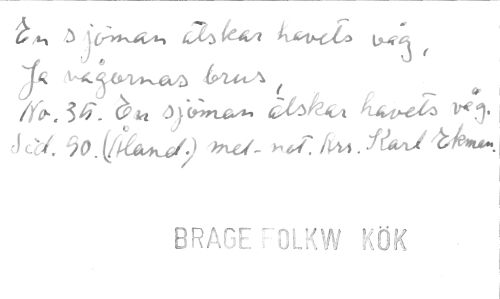 En sjöman älskar havets våg,
Ja vågornas brus,
No. 35. En sjöman älskar havets våg.
Sid. 90. (Åland.) mel- not. hrs. Karl Ekman.
BRAGE FOLKW KÖK